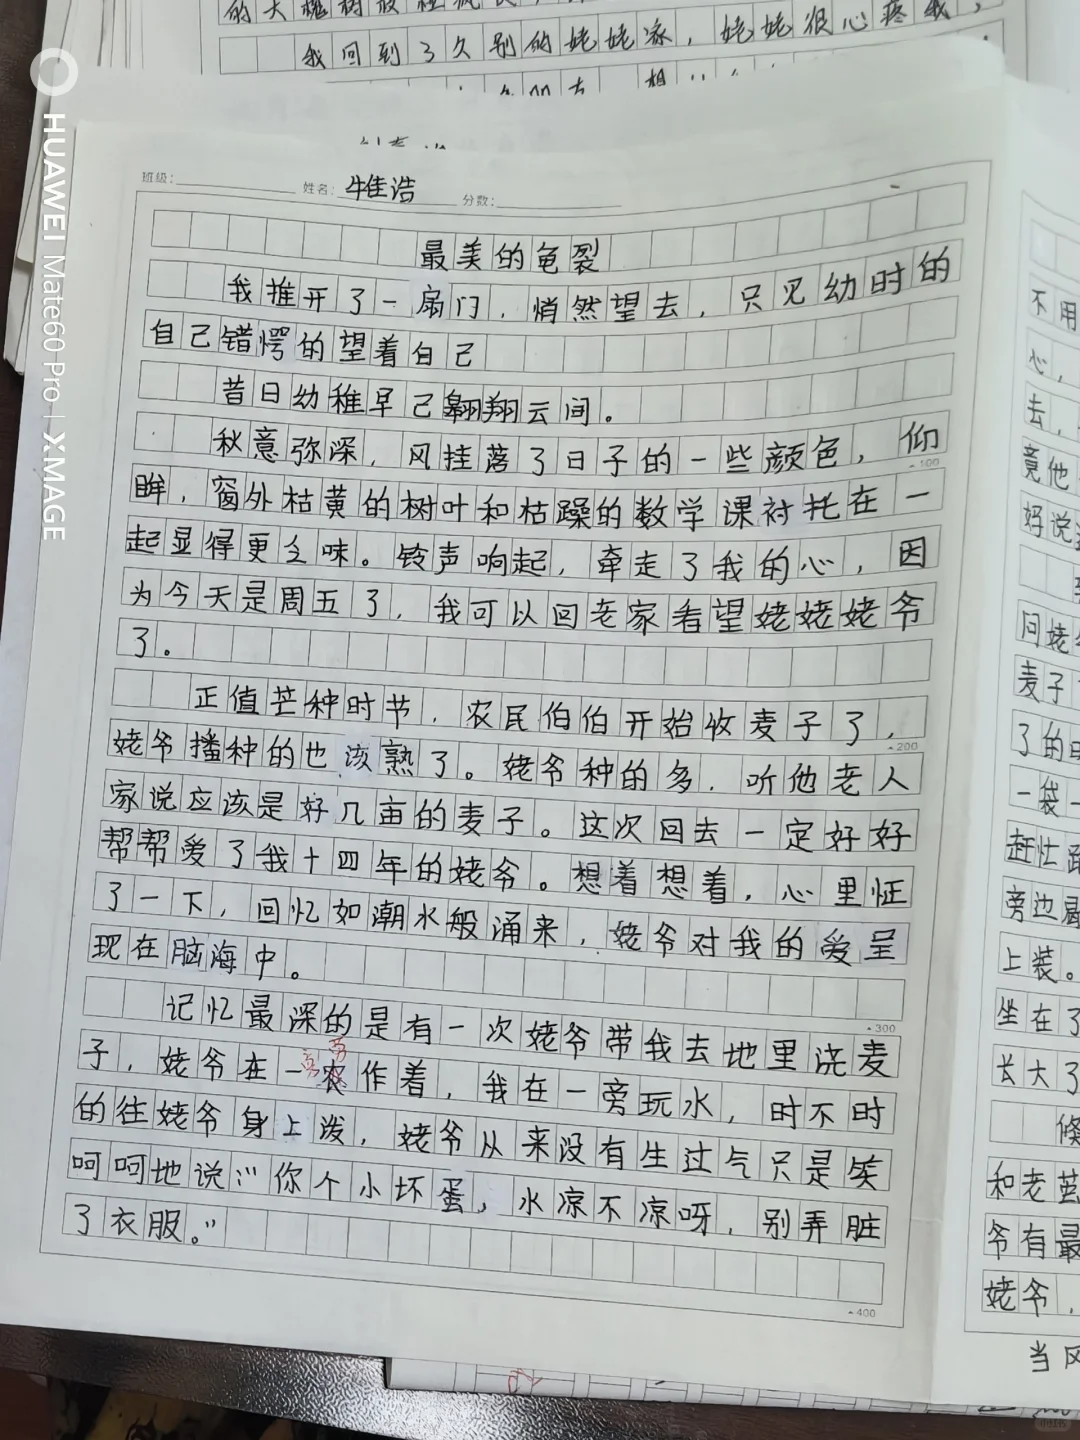 我回到了久别的姥姥家，姥姥很心疼我，
班级：
姓名：牛佳浩
分数：
最美的龟裂
我推开了一扇门，悄然望去，只见幼时的
自己错愕的望着自己
昔日幼稚早已翱翔云间。
秋意弥深，风挂落了日子的一些颜色，仰
100
眸，窗外枯黄的树叶和枯躁的数学课衬托在一
起显得更乏味。铃声响起，牵走了我的心，因
为今天是周五了，我可以回老家看望姥姥姥爷
了。
正值芒种时节，农民伯伯开始收麦子了，
200
姥爷播种的也该熟了。姥爷种的多，听他老人
家说应该是好几亩的麦子。这次回去一定好好
帮帮爱了我十四年的姥爷。想着想着，心里怔
了一下，回忆如潮水般涌来，姥爷对我的爱呈
现在脑海中。
300
记忆最深的是有一次姥爷带我去地里浇麦
子，姥爷在一旁农作着，我在一旁玩水，时不时
的往姥爷身上泼，姥爷从来没有生过气只是笑
呵呵地说：“你个小坏蛋，水凉不凉呀，别弄脏
了衣服。”
400
不用
心，
去，
竟他
好说
问姥
麦子
了的
一袋一
赶忙
旁边
上装。
坐在了
长大了
和老
爷有最
姥爷，
当风
HUAWEI Mate60 Pro | XMAGE